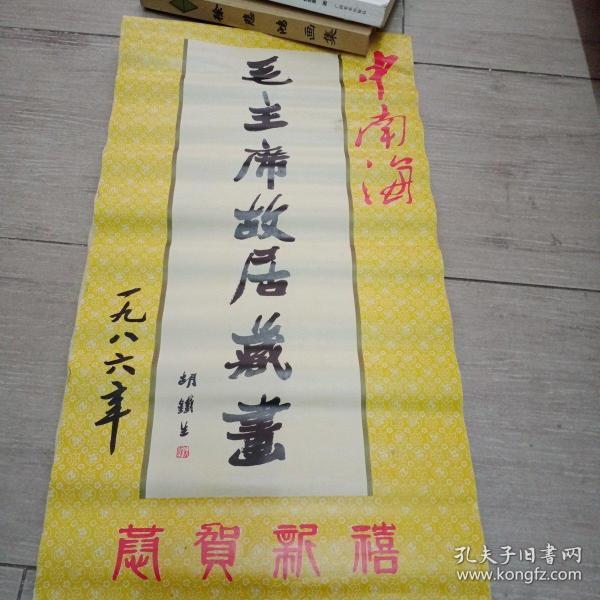 徐悲鸿画集
中南海
毛主席故居藏畫
胡鐵生
一九八六年
恭賀新禧
孔夫子旧书网
www.kongfz.com